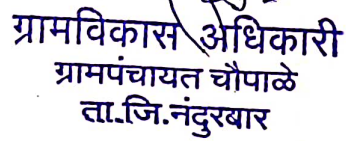 ग्रामविकास अधिकारी
ग्रामपंचायत चौपाळे
ता.जि.नंदुरबार